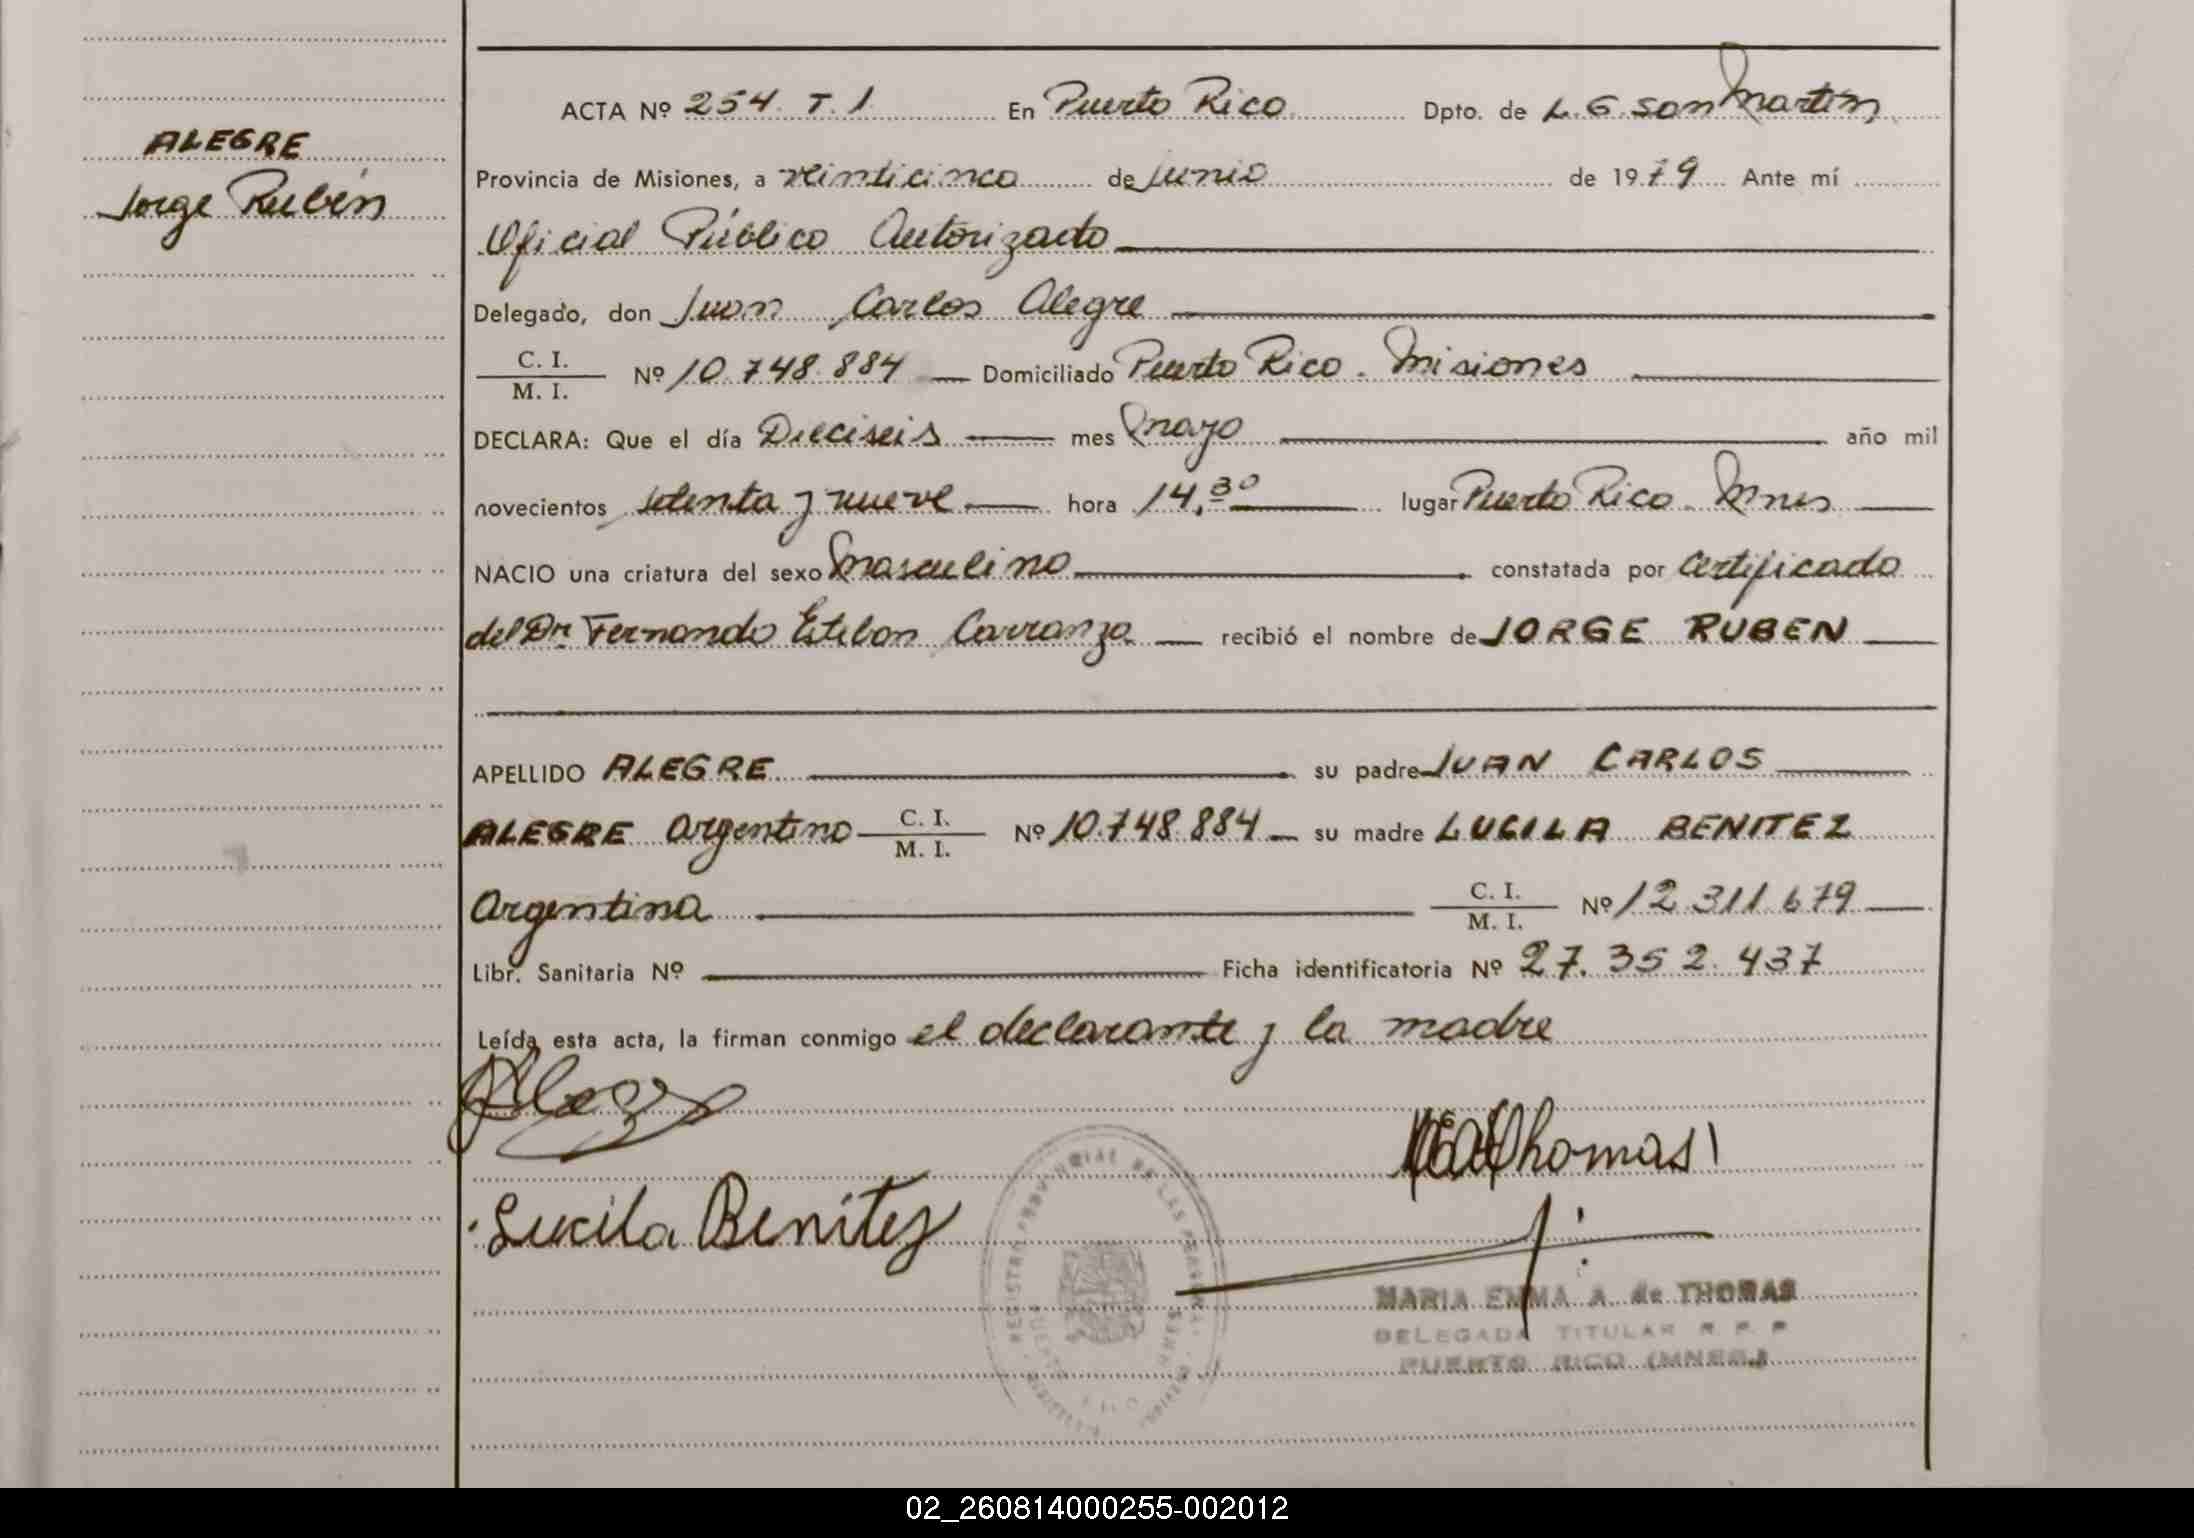 ALEGRE
Jorge Rubén
ACTA Nº 254. T. 1. En Puerto Rico Dpto. de L. G. San Martin
Provincia de Misiones, a veinticinco de Junio de 1979 Ante mí
Oficial Público Autorizado
Delegado, don Juan Carlos Alegre
C. I.
M. I. Nº 10.748.884 Domiciliado Puerto Rico. Misiones
DECLARA: Que el día Dieciseis mes mayo año mil
novecientos setenta y nueve hora 14,30 lugar Puerto Rico. Mnes
NACIO una criatura del sexo masculino constatada por Certificado
del Dr. Fernando Esteban Carranza recibió el nombre de JORGE RUBEN
APELLIDO ALEGRE su padre JUAN CARLOS
ALEGRE Argentino C. I.
M. I. Nº 10.748.884 su madre LUCILA BENITEZ
Argentina C. I.
M. I. Nº 12.311.679
Libr. Sanitaria Nº Ficha identificatoria Nº 27.352.437
Leída esta acta, la firman conmigo el declarante y la madre
Thomas
Lucila Benitez
REGISTRO PROVINCIAL DE LAS PERSONAS
MARIA EMMA A. de THOMAS
DELEGADA TITULAR R. P. P
PUERTO RICO (MNES.)
02_260814000255-002012